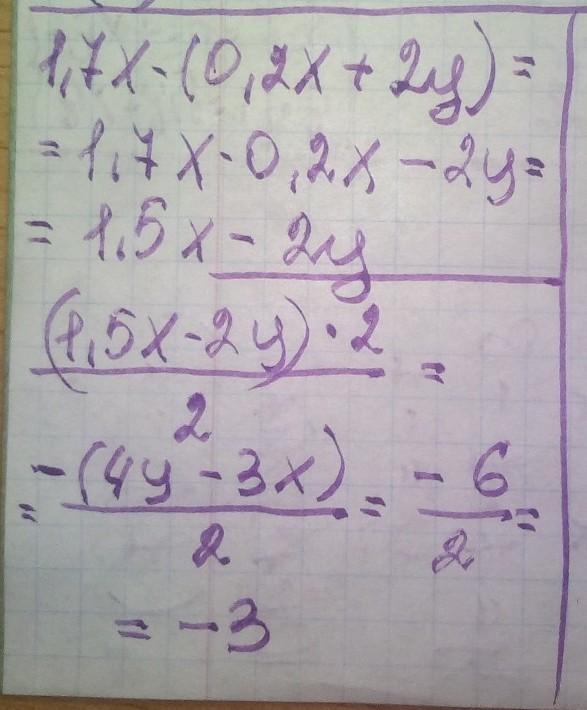 1,7x-(0,2x+2y)=
=1,7x-0,2x-2y=
=1,5x-2y
(1,5x-2y)·2
=
2
-(4y-3x)
-6
=
=
=
2
2
=-3